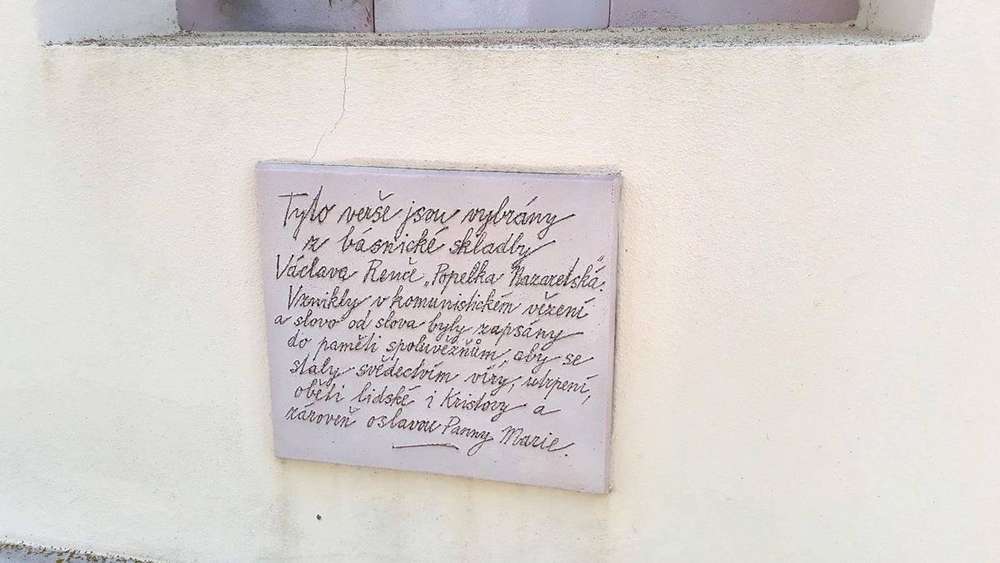 Tyto verše jsou vybrány
z básnické skladby
Václava Renče „Popelka Nazaretská“.
Vznikly v komunistickém vězení
a slovo od slova byly zapsány
do paměti spoluvězňům, aby se
staly svědectvím víry, utrpení,
oběti lidské i Kristovy a
zároveň oslavou Panny Marie.